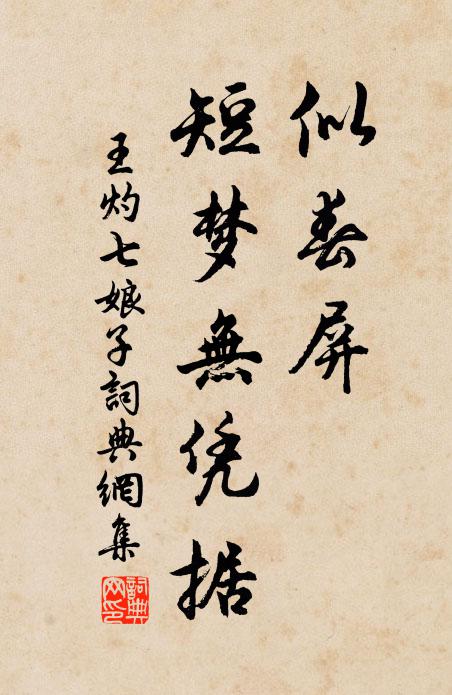 似春屏
短梦無凭据
王灼七娘子詞典網集
詞典网印